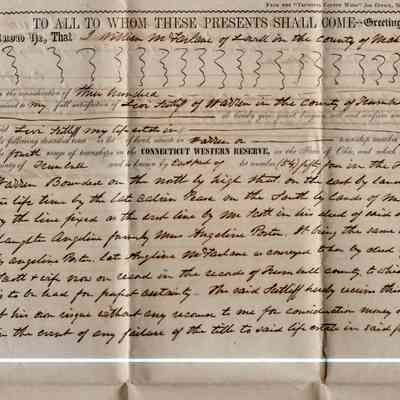 FROM THE "TRUMBULL COUNTY WHIG" JOB OFFICE,
TO ALL TO WHOM THESE PRESENTS SHALL COME—Greeting
Know Ye, That I William McFarlane of in the County of Mah
the consideration of Three hundred
received to my full satisfaction of Levi Sutliff of Warren in the County of Trumbull
do hereby give, grant, bargain, sell and confirm
said Levi Sutliff my life estate in
the following described tract of land, situate in Warren or
fourth range of townships in the CONNECTICUT WESTERN RESERVE, in the State of Ohio, and which
County of Trumbull and is known by East part of lot number (54) fifty four in the
Warren Bounded on the north by high street, on the east by land
in life time by the late Calvin Pease on the South by lands of
by the line fixed as the east line by Mr Scott in his deed of said
daughter Angeline formerly Miss Angeline Porter. It being the same
by Angeline Porter. late Angeline McFarlane as conveyed to her by deed
Scott & wife now on record in the records of Trumbull county to which
is to be had for perfect certainty. The said Sutliff hereby receives this
at his own risque without any recourse to me for consideration money
in the event of any failure of the title to said life estate in said